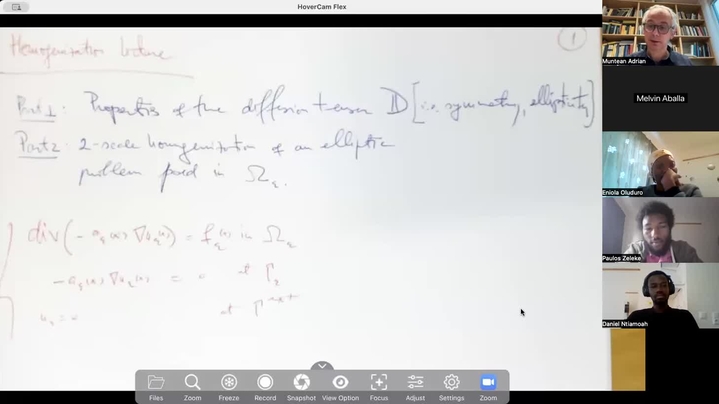 HoverCam Flex
Homogenization lecture
1
Part 1: Properties of the diffusion tensor 𝔻 [i.e. symmetry, ellipticity]
Part 2: 2-scale homogenization of an elliptic
problem posed in Ω_ε.
div(-a_ε(x) ∇u_ε(x)) = f_ε(x) in Ω_ε
-a_ε(x) ∇u_ε(x) = 0 at Γ_ε
u_ε = 0 at Γ^ext
Muntean Adrian
Melvin Aballa
Eniola Oluduro
Paulos Zeleke
Daniel Ntiamoah
Files
Zoom
Freeze
Record
Snapshot
View Option
Focus
Adjust
Settings
Zoom